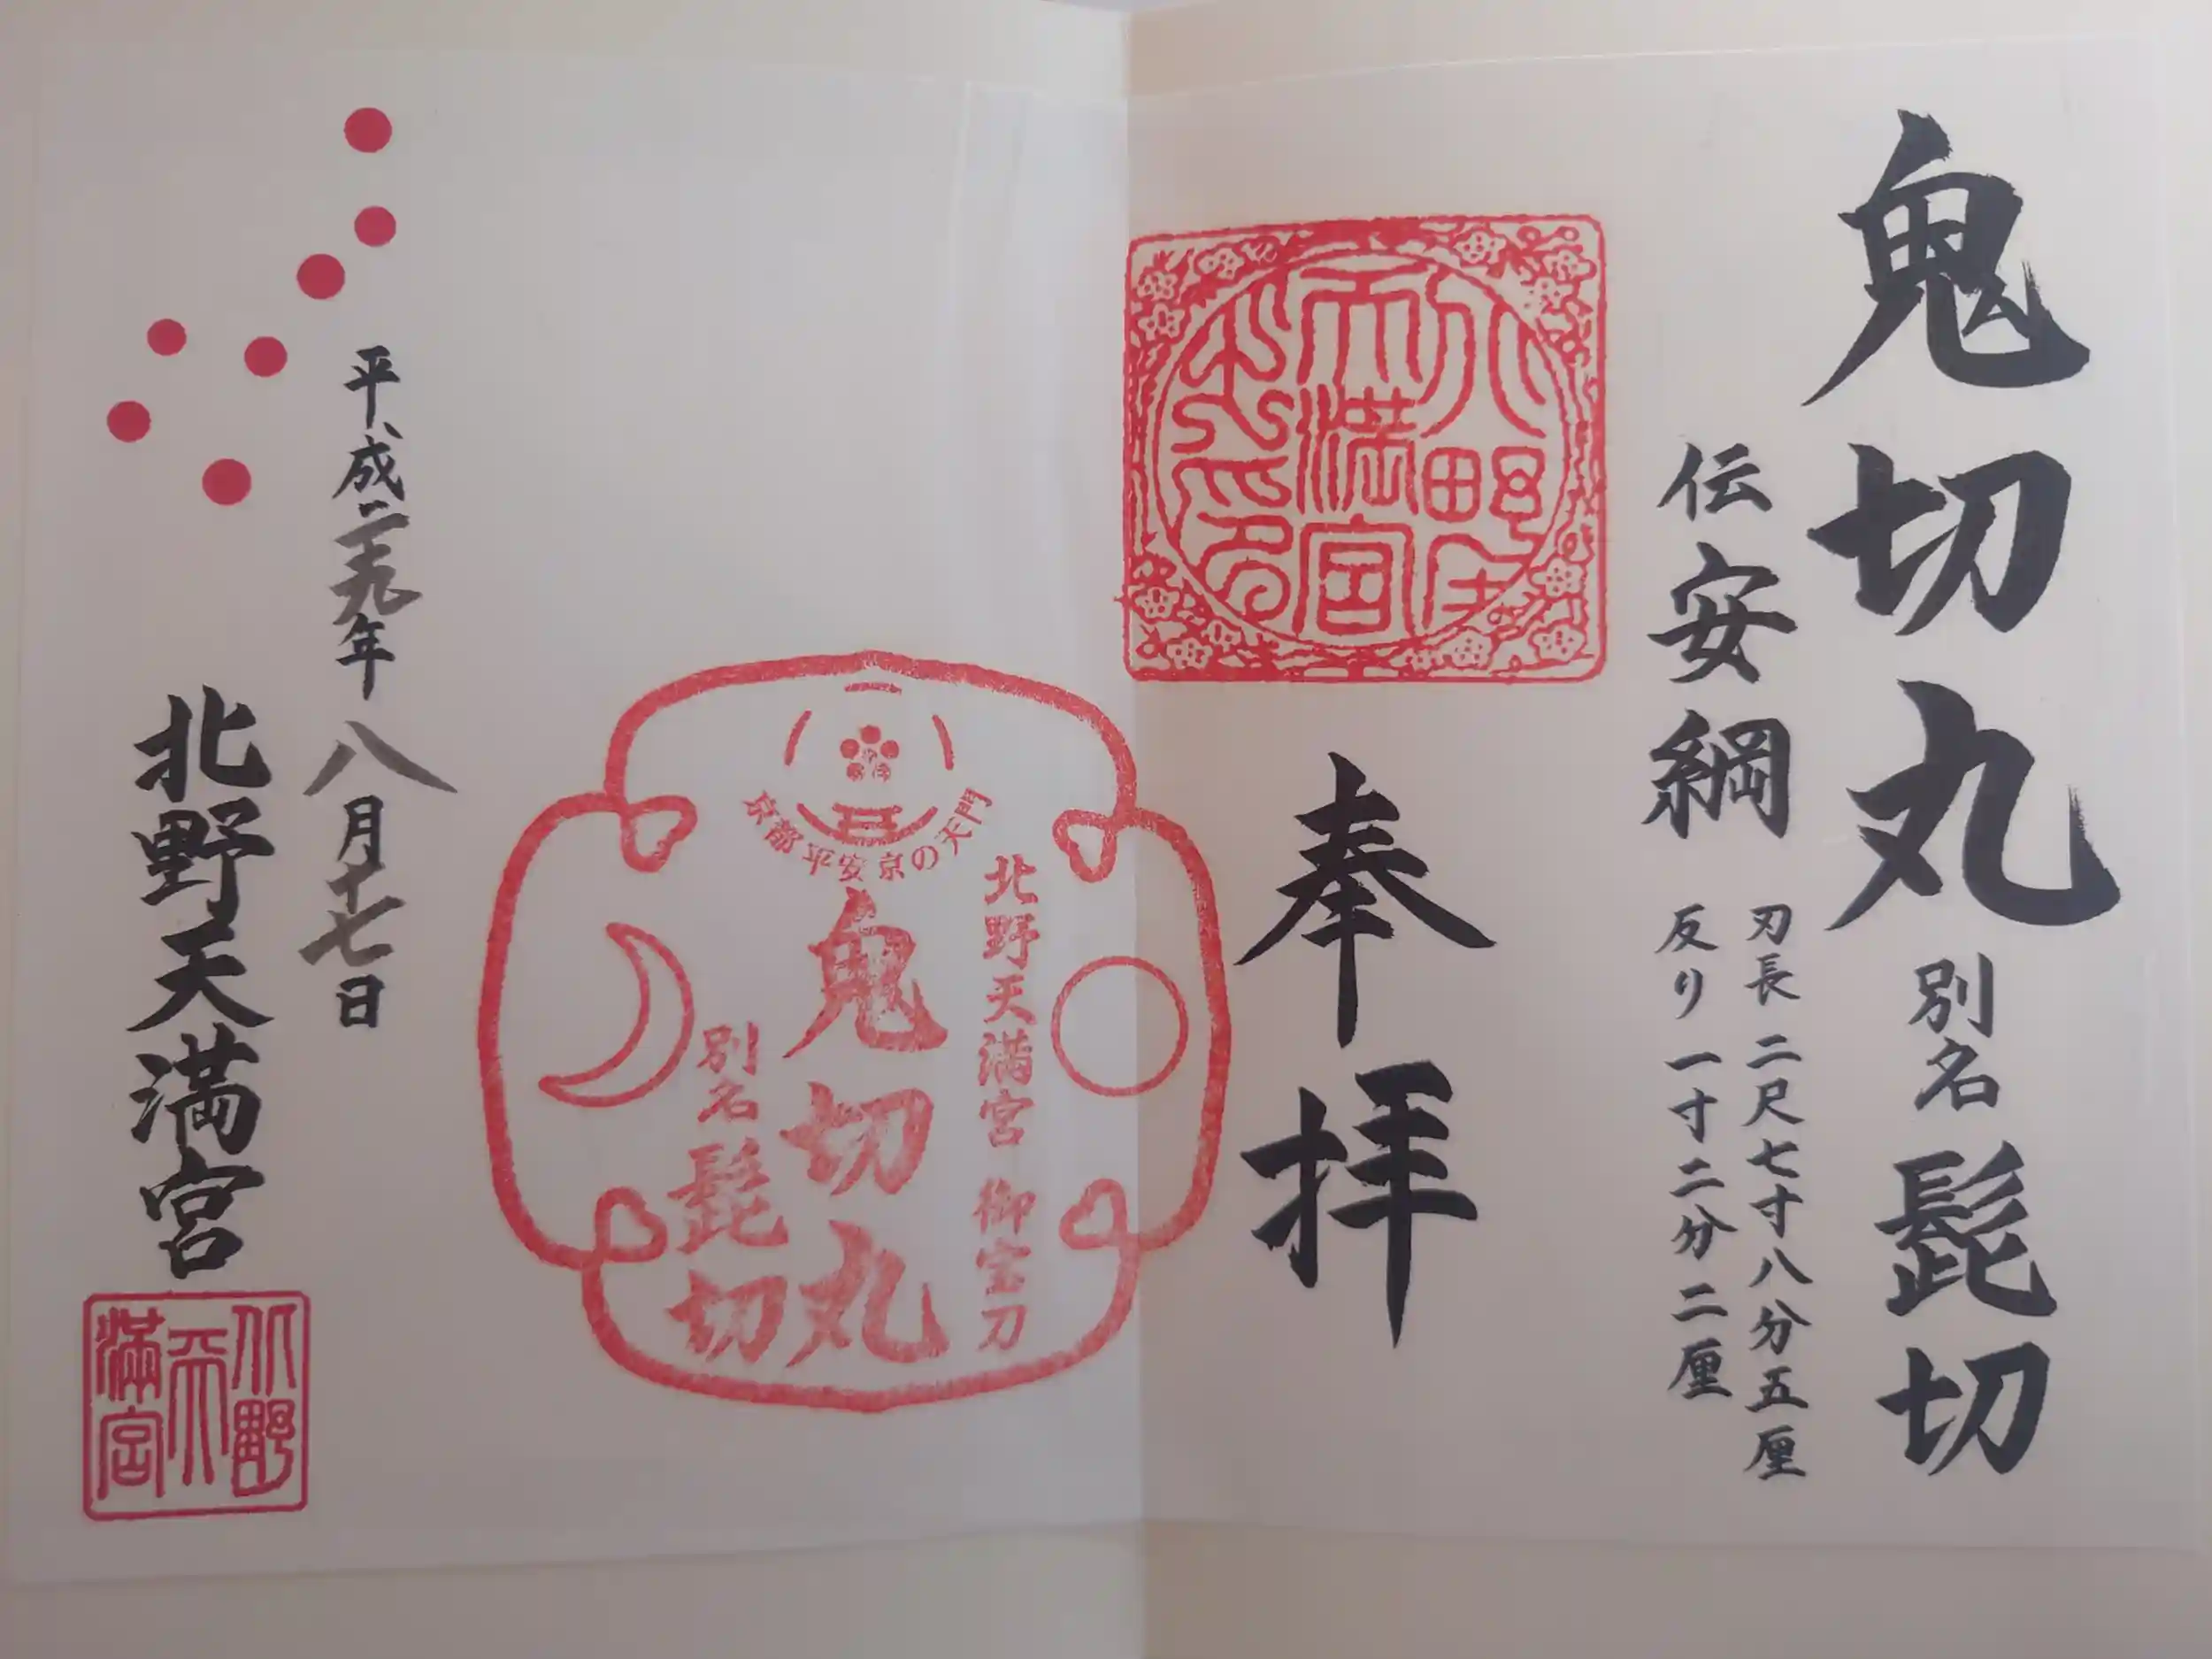 鬼切丸 別名 髭切
伝安綱
刃長 二尺七寸八分五厘
反り 一寸二分二厘
奉拝
北野天満宮
京都平安京の天門
北野天満宮 御宝刀
鬼切丸
別名 髭切
平成二十九年八月十七日
北野天満宮
北野天満宮